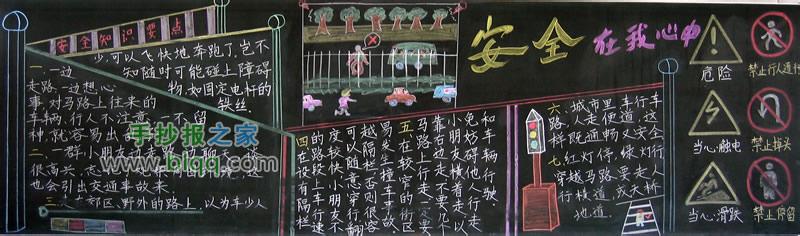 安全知识要点
少,可以飞快地奔跑了,岂不
知随时可能碰上障碍
物,如固定电杆的
铁丝,
一.一边
走路,一边想心
事,对马路上往来的
车辆,行人不注意
种,就容易出
不留
二.一群小朋友
很高兴,
也会引出交通事故来.
郊区、野外的路上,以为车少人
手抄报之家
www.blqq.cn
安全在我心中
四在设有隔栏
的路段上车行速
度较快小朋友不
可以随意穿行翻
越隔栏否则很容
易发生撞车事故
五在较窄的街区
马路上行走一定要
靠右边走不要几个
小朋友横着走以
免妨碍他人行走
和车辆行驶
六.城市里,车行车
路,人走便道,这
样既通畅又安全
七.红灯停,绿灯行
穿越马路,要走人
行横道,或天桥
地道.
危险
禁止行人通行
当心触电
禁止掉头
当心滑跌
禁止停留